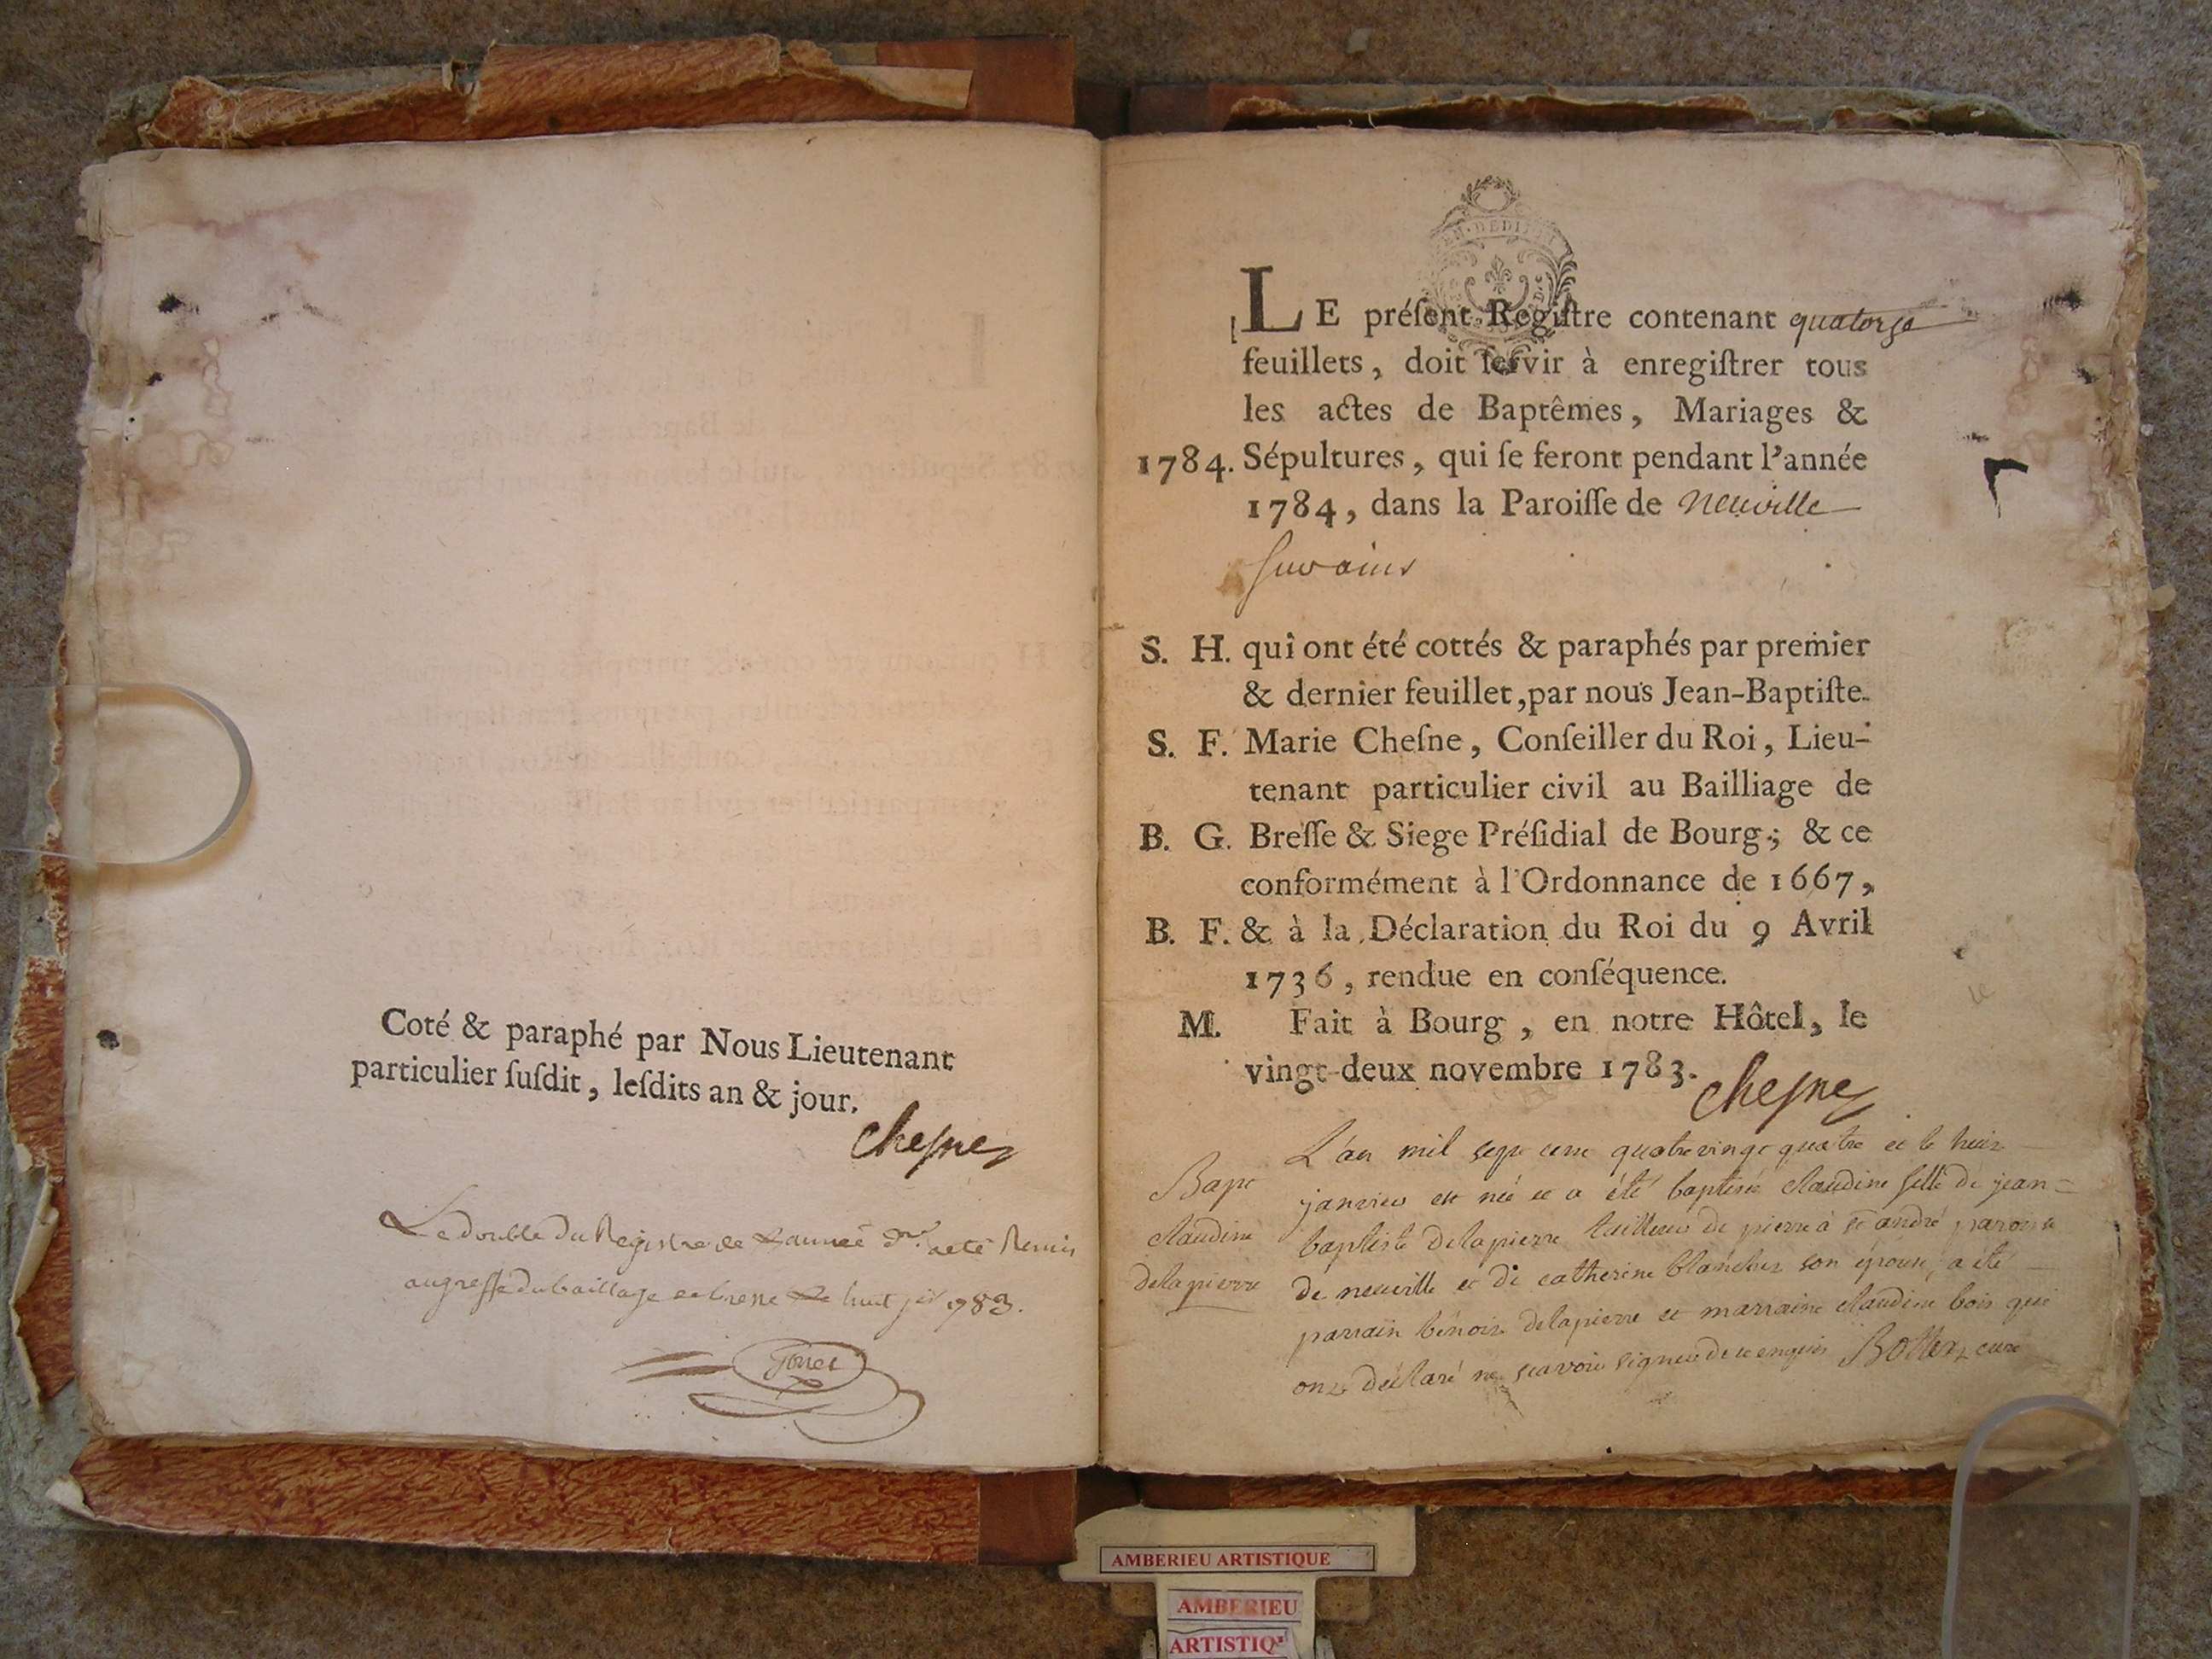 Coté & paraphé par Nous Lieutenant
particulier ſuſdit, leſdits an & jour.
Cheſne
Le double du Registre de Lannée dre a eté Remis
au greffe du bailliage de bresse le huit jer 1783.
LE préſent Regiſtre contenant quatorze
feuillets, doit ſervir à enregiſtrer tous
les actes de Baptêmes, Mariages &
1784. Sépultures, qui ſe feront pendant l'année
1784, dans la Paroiſſe de neuville
S. H. qui ont été cottés & paraphés par premier
& dernier feuillet, par nous Jean-Baptiſte-
S. F. Marie Cheſne, Conſeiller du Roi, Lieu-
tenant particulier civil au Bailliage de
B. G. Breſſe & Siege Préſidial de Bourg; & ce
conformément à l'Ordonnance de 1667,
B. F. & à la Déclaration du Roi du 9 Avril
1736, rendue en conſéquence.
M. Fait à Bourg, en notre Hôtel, le
vingt-deux novembre 1783.
Cheſne
Bapt
claudine
delapierre
L'an mil sept cent quatre vingt quatre et le huit
janvier est née et a été baptisée claudine fille de jean=
baptiste delapierre tailleur de pierre à st andré paroisse
de neuville et de catherine blanchet son épouse, a été
parrain bénoit delapierre et marraine claudine bois qui
ont déclaré ne scavoir signer de ce enquis curé
AMBERIEU ARTISTIQUE
AMBERIEU
ARTISTIQ